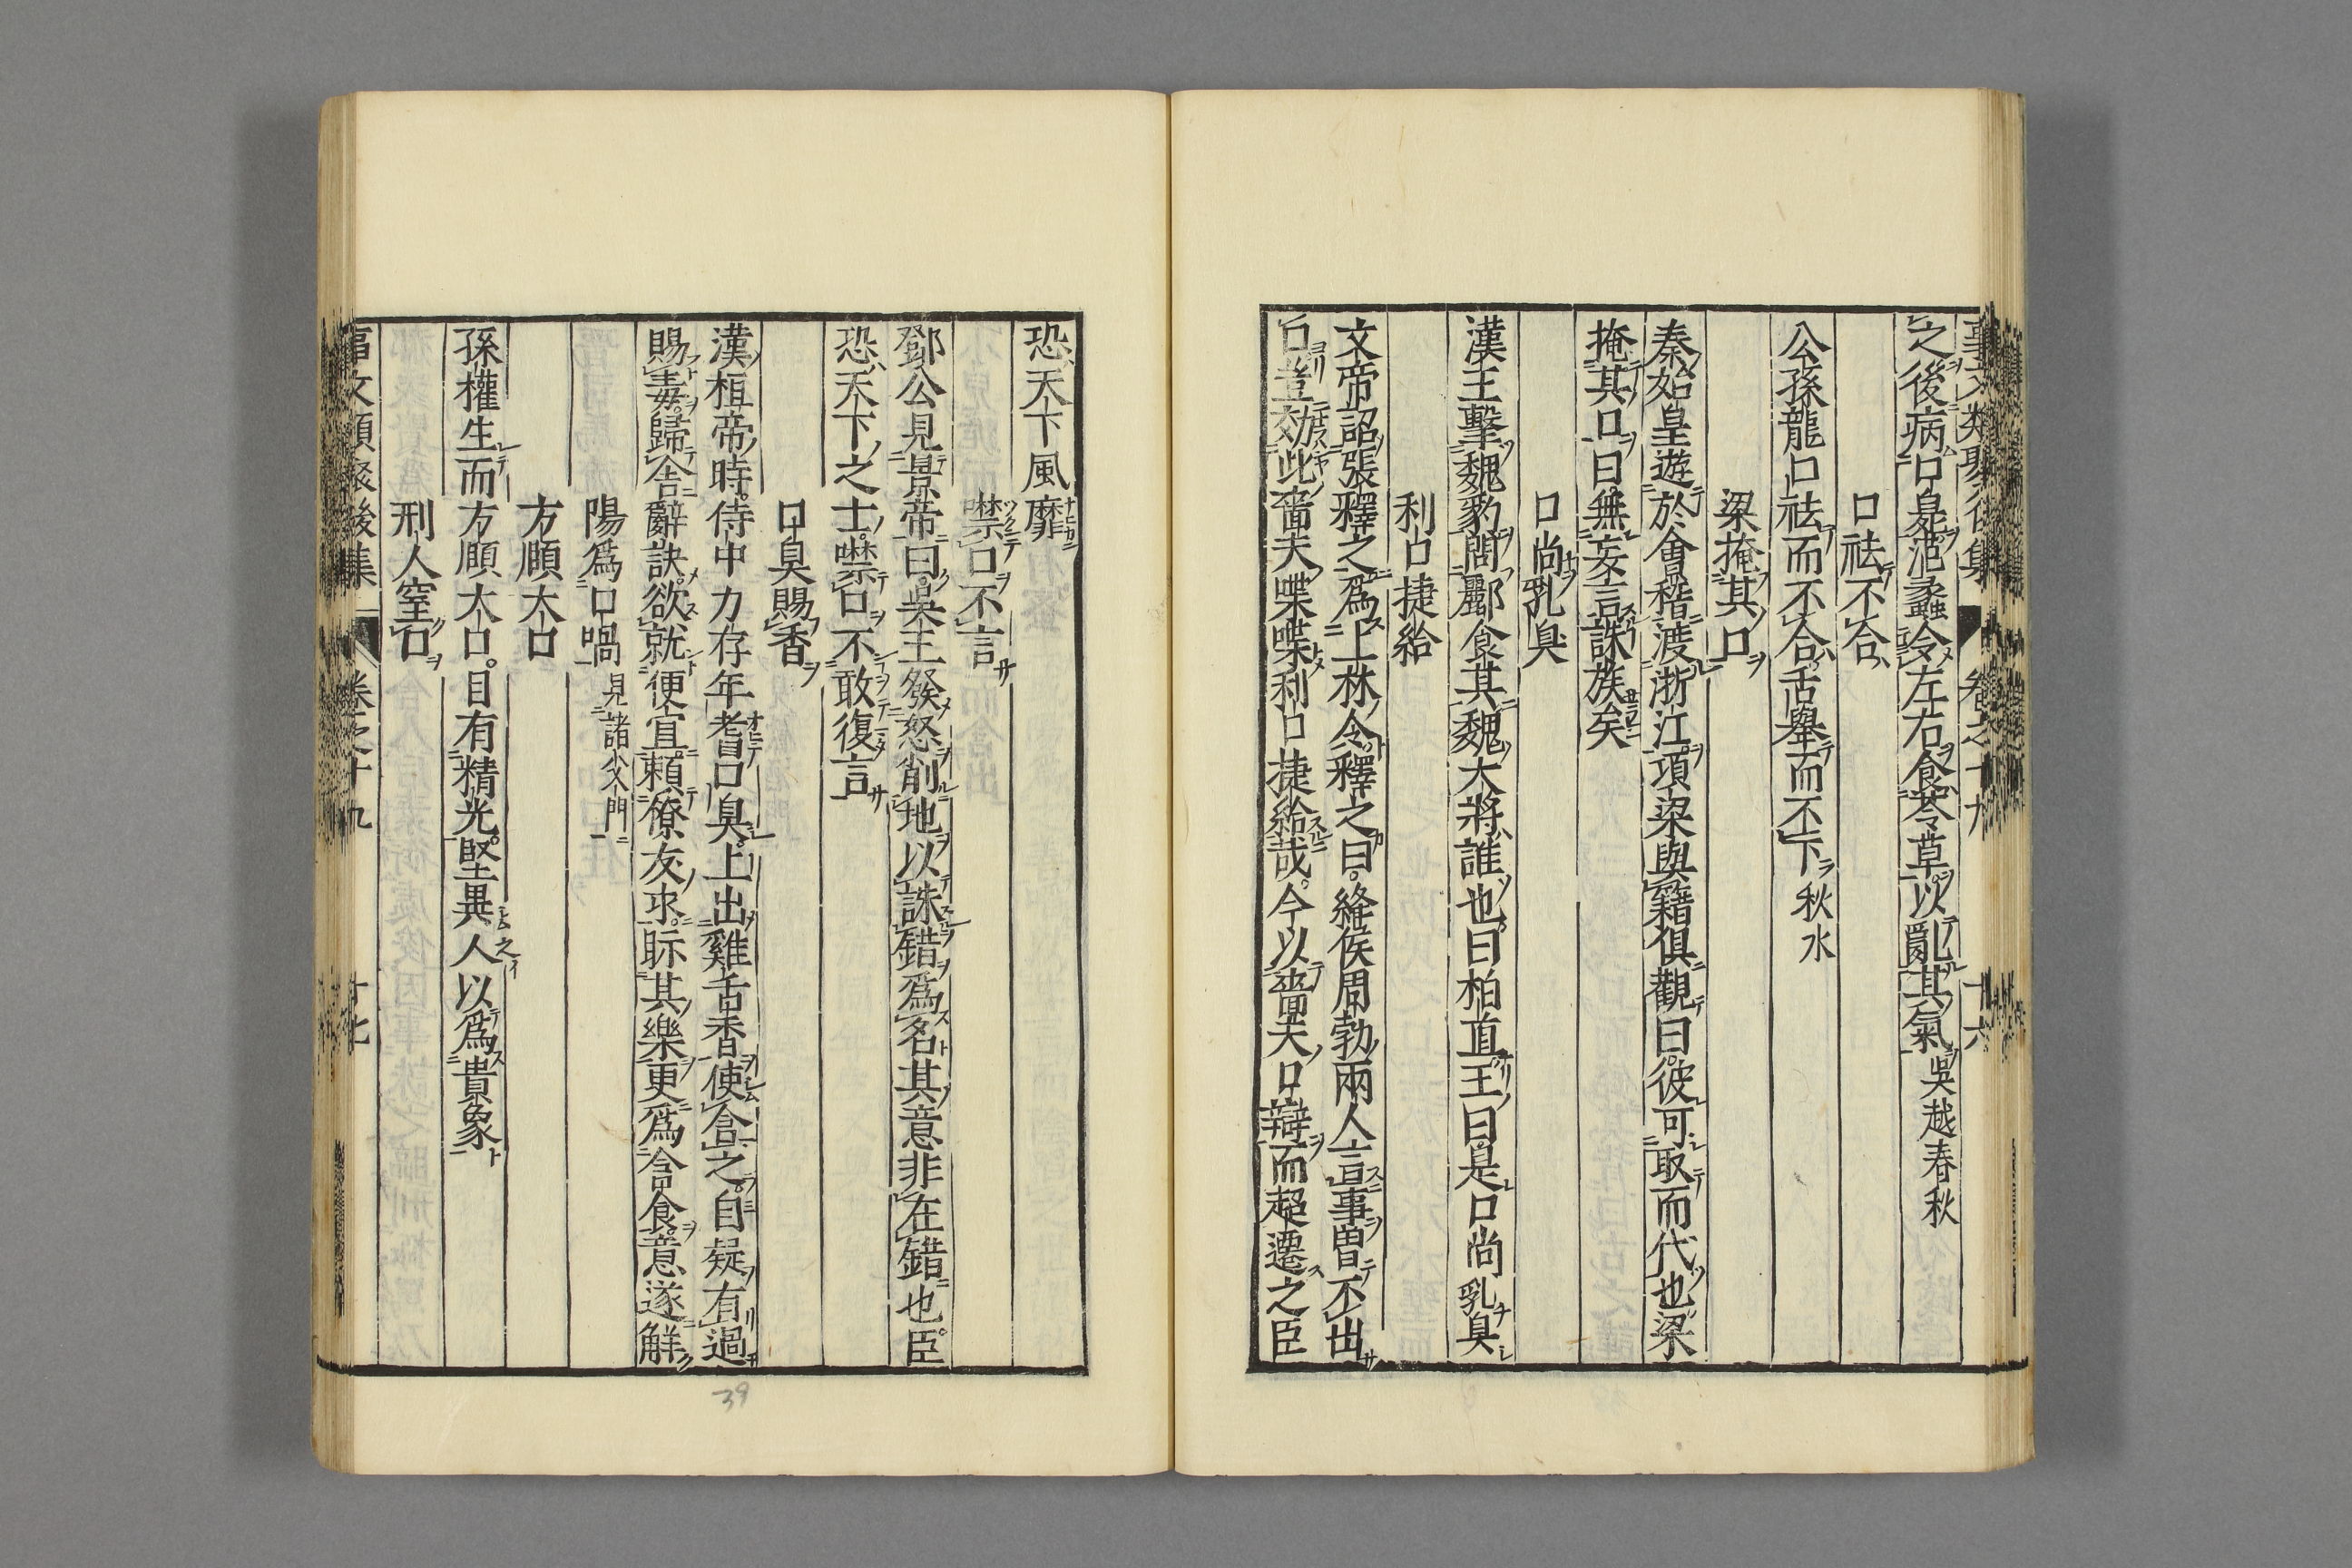 事文類聚後集 卷之十九 十六
之後病口臭范蠡令左右食苓草以亂其氣吳越春秋
口祛不合
公孫龍口祛而不合舌舉而不下秋水
梁掩其口
秦始皇遊於會稽渡浙江項梁與籍俱觀曰彼可取而代也梁
掩其口曰無妄言誅族矣
口尚乳臭
漢王擊魏豹問酈食其魏大將誰也曰柏直王曰是口尚乳臭
利口捷給
文帝詔張釋之為上林令釋之曰絳侯周勃兩人言事曽不出
口豈效此嗇夫喋喋利口捷給哉今以嗇夫口辯而超遷之臣
恐天下風靡
噤口不言
鄧公見景帝曰吳王發怒削地以誅錯爲名其意非在錯也臣
恐天下之士噤口不敢復言
口臭賜香
漢桓帝時侍中刀存年耆口臭上出雞舌香使含之自疑有過
賜毒歸舍辭訣欲就便宜賴僚友求眎其藥更爲含食意遂解
陽爲口喎見諸父門
方頤大口
孫權生而方頤大口目有精光堅異之人以爲貴象
刑人窒口
事文類聚後集 卷之十九 十七
39